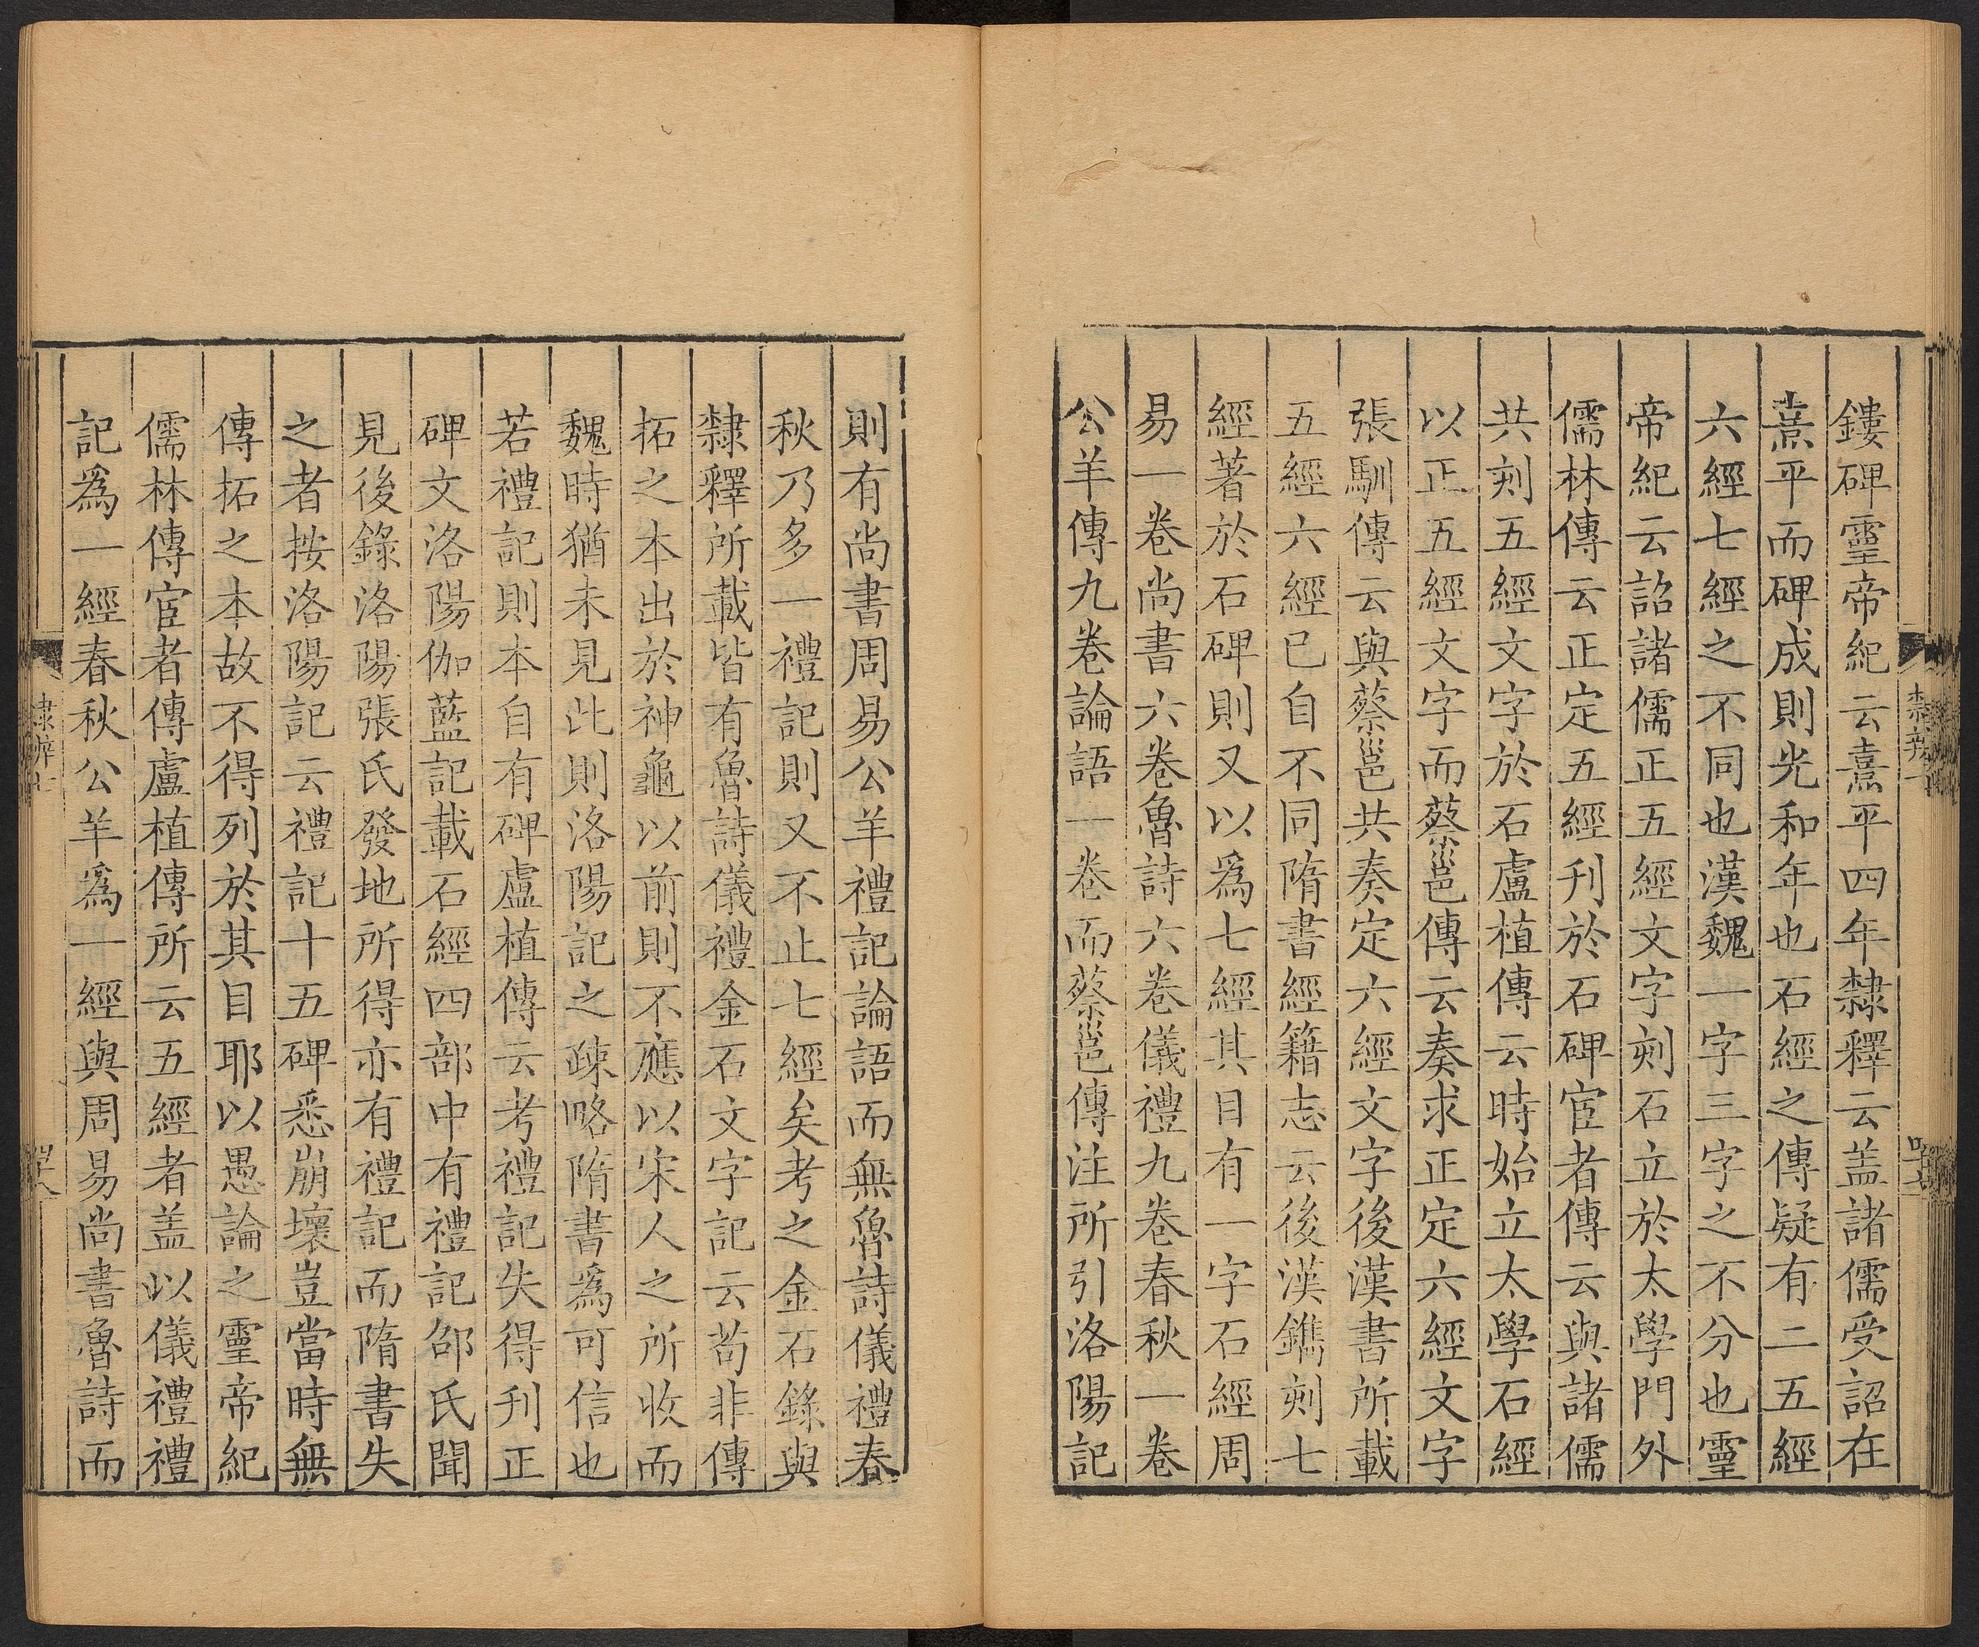 鏤碑靈帝紀云熹平四年隸釋云盖諸儒受詔在
熹平而碑成則光和年也石經之傳疑有二五經
六經七經之不同也漢魏一字三字之不分也靈
帝紀云詔諸儒正五經文字刻石立於太學門外
儒林傳云正定五經刋於石碑宦者傳云與諸儒
共刻五經文字於石盧植傳云時始立太學石經
以正五經文字而蔡邕傳云奏求正定六經文字
張馴傳云與蔡邕共奏定六經文字後漢書所載
五經六經已自不同隋書經籍志云後漢鐫刻七
經著於石碑則又以爲七經其目有一字石經周
易一卷尚書六卷魯詩六卷儀禮九卷春秋一卷
公羊傳九卷論語一卷而蔡邕傳注所引洛陽記
則有尚書周易公羊禮記論語而無魯詩儀禮春
秋乃多一禮記則又不止七經矣考之金石錄與
隸釋所載皆有魯詩儀禮金石文字記云苟非傳
拓之本出於神龜以前則不應以宋人之所收而
魏時猶未見此則洛陽記之疎略隋書爲可信也
若禮記則本自有碑盧植傳云考禮記失得刋正
碑文洛陽伽藍記載石經四部中有禮記邵氏聞
見後錄洛陽張氏發地所得亦有禮記而隋書失
之者按洛陽記云禮記十五碑悉崩壞豈當時無
傳拓之本故不得列於其目耶以愚論之靈帝紀
儒林傳宦者傳盧植傳所云五經者盖以儀禮禮
記爲一經春秋公羊爲一經與周易尚書魯詩而